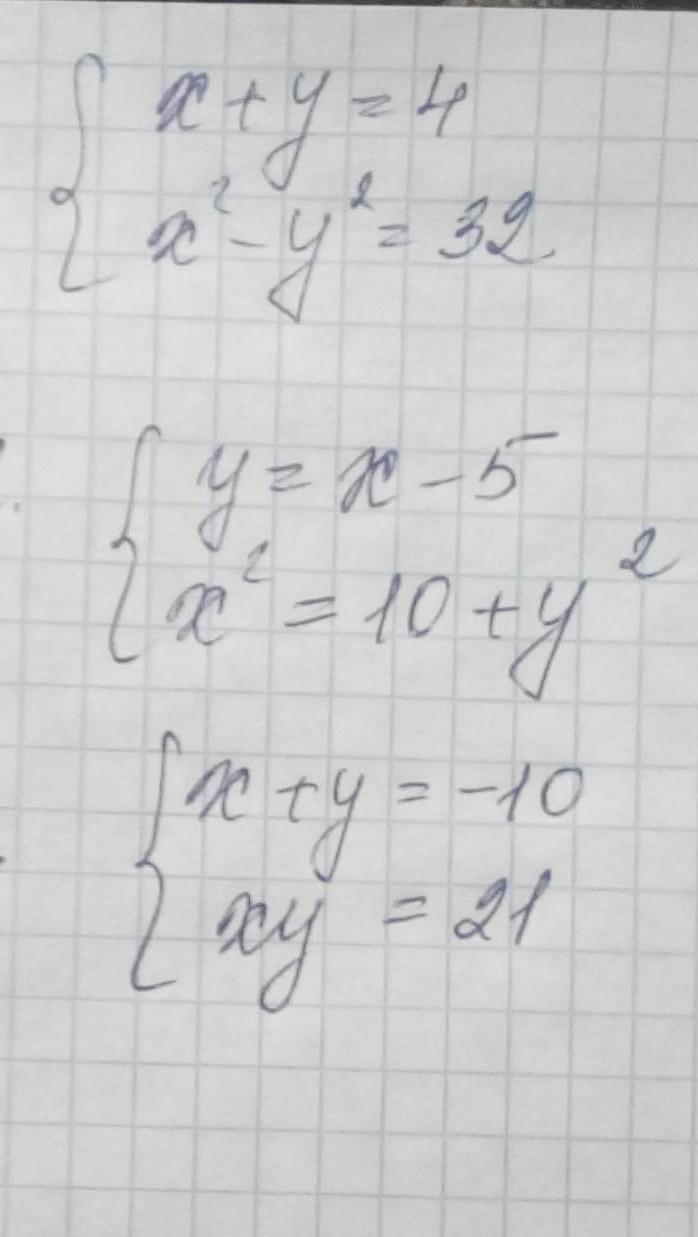 x + y = 4
x² - y² = 32
y = x - 5
x² = 10 + y²
x + y = -10
xy = 21